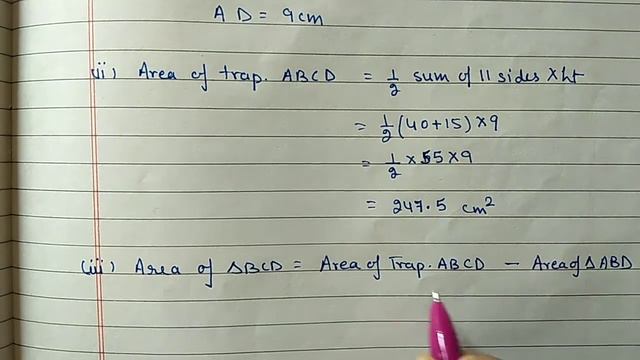 AD = 9cm
(ii) Area of trap. ABCD = 1/2 sum of 11 sides × ht
= 1/2 (40+15) × 9
= 1/2 × 55 × 9
= 247.5 cm²
(iii) Area of △BCD = Area of Trap. ABCD - Area of △ ABD